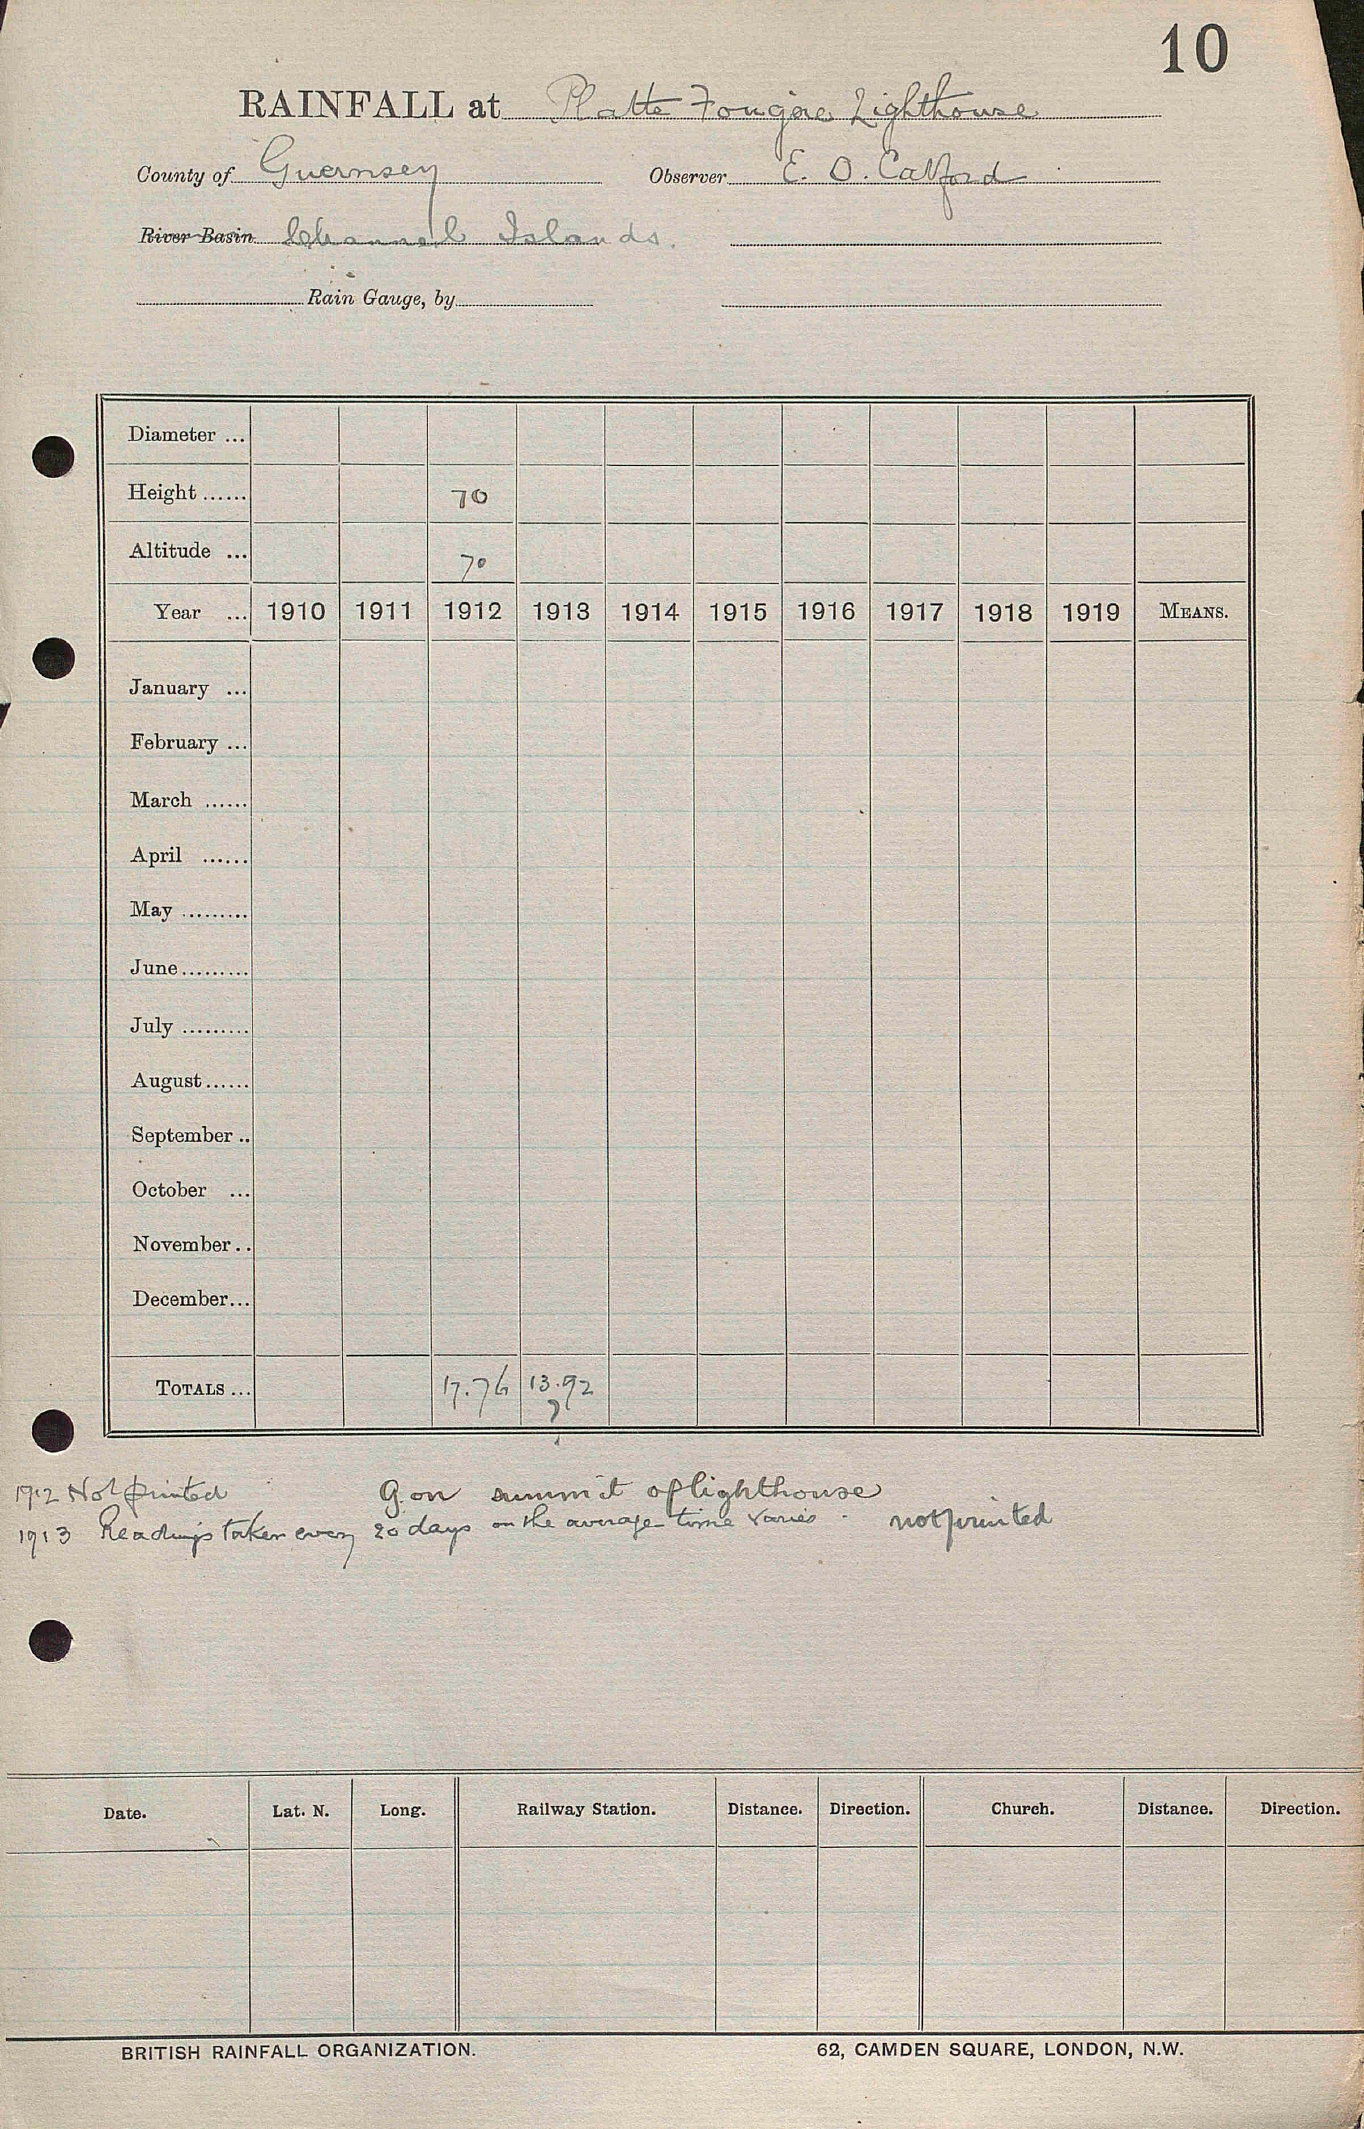 10
RAINFALL at Platte Fougère Lighthouse
County of Guernsey Observer E. O. Catford
River Basin Channel Islands.
Rain Gauge, by
Diameter ...
Height ...... 70
Altitude ... 70
Year ... 1910 1911 1912 1913 1914 1915 1916 1917 1918 1919 MEANS.
January ...
February ...
March ......
April ......
May .........
June.........
July .........
August......
September ..
October ...
November ..
December...
TOTALS ... 17.76 13.92
?
1912 Not printed G. on summit of lighthouse
1913 Readings taken every 20 days on the average time varies. not printed
Date. Lat. N. Long. Railway Station. Distance. Direction. Church. Distance. Direction.
BRITISH RAINFALL ORGANIZATION. 62, CAMDEN SQUARE, LONDON, N.W.